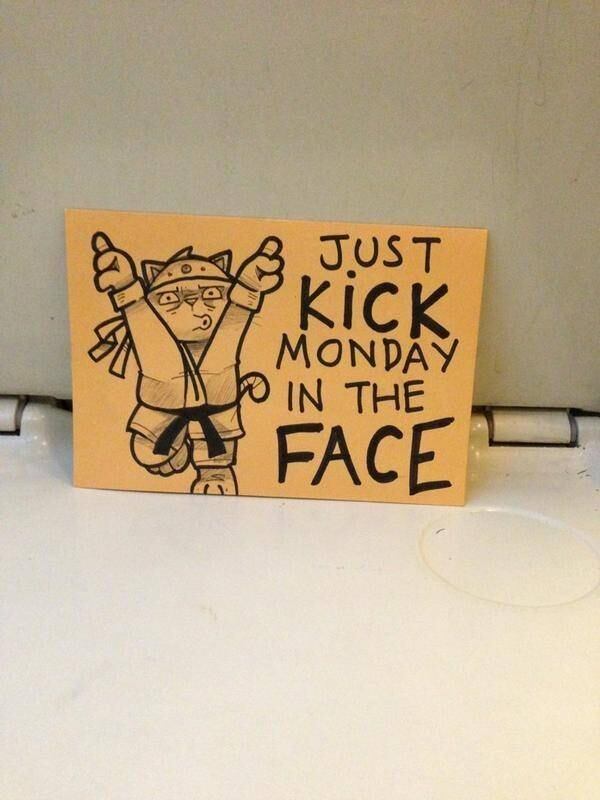 JUST
KiCK
MONDAY
IN THE
FACE